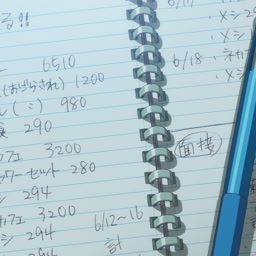 る!!
6510
(おばらされ) 1200
ル(:) 980
290
カフェ 3200
ワーセット 280
シ 294
カフェ 3200
シ 294
294
6/12~16
計
6/17
・メシ 29
・メシ
6/18 ・ネカ
・メシ
面接